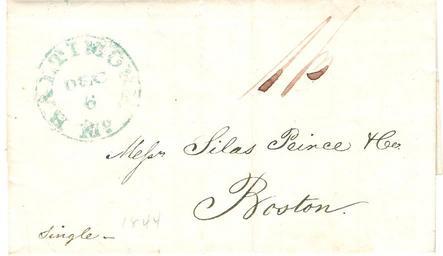 BALTIMORE Md.
DEC
6
Messrs Silas Peirce & Co.
Boston.
1844
Single